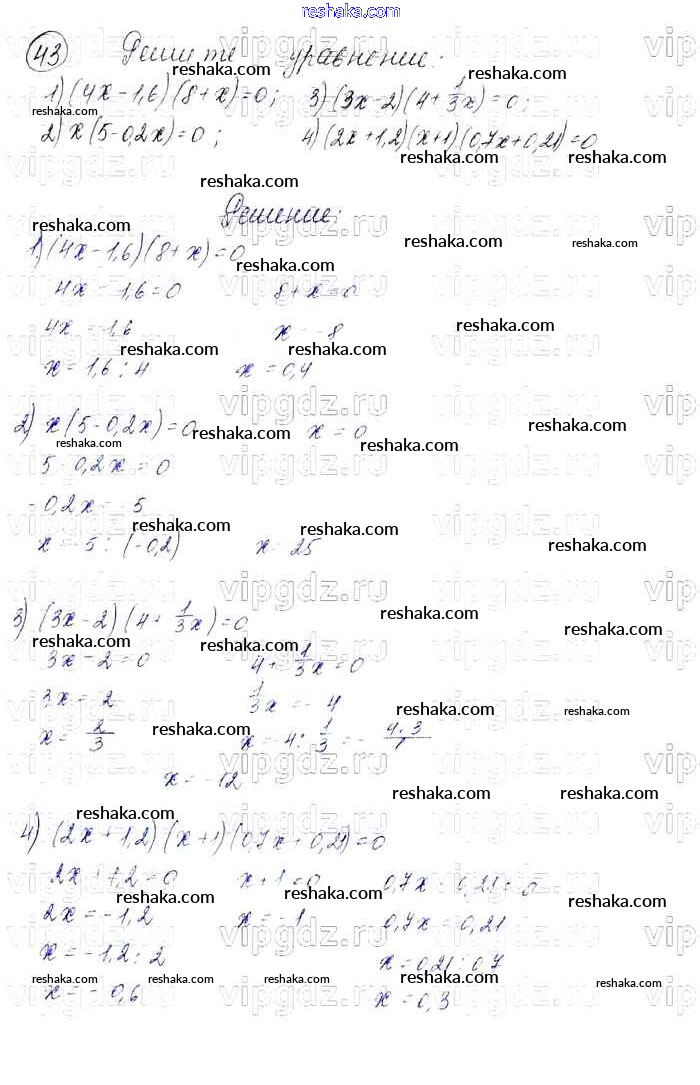 reshaka.com
43 Решите уравнение.
1) (4x-1,6)(8+x)=0; 3) (3x-2)(4+1/3x)=0;
2) x(5-0,2x)=0; 4) (2x+1,2)(x+1)(0,7x+0,21)=0
Решение:
1) (4x-1,6)(8+x)=0
4x-1,6=0 8+x=0
4x=1,6 x=-8
x=1,6:4 x=0,4
2) x(5-0,2x)=0 x=0
5-0,2x=0
-0,2x=-5
x=-5:(-0,2) x=25
3) (3x-2)(4+1/3x)=0
3x-2=0 4+1/3x=0
3x=2 1/3x=-4
x=2/3 x=-4:1/3=-4·3/1
x=-12
4) (2x+1,2)(x+1)(0,7x+0,21)=0
2x+1,2=0 x+1=0 0,7x 0,21=0
2x=-1,2 x=-1 0,7x=0,21
x=-1,2:2 x=0,21:0,7
x=-0,6 x=0,3